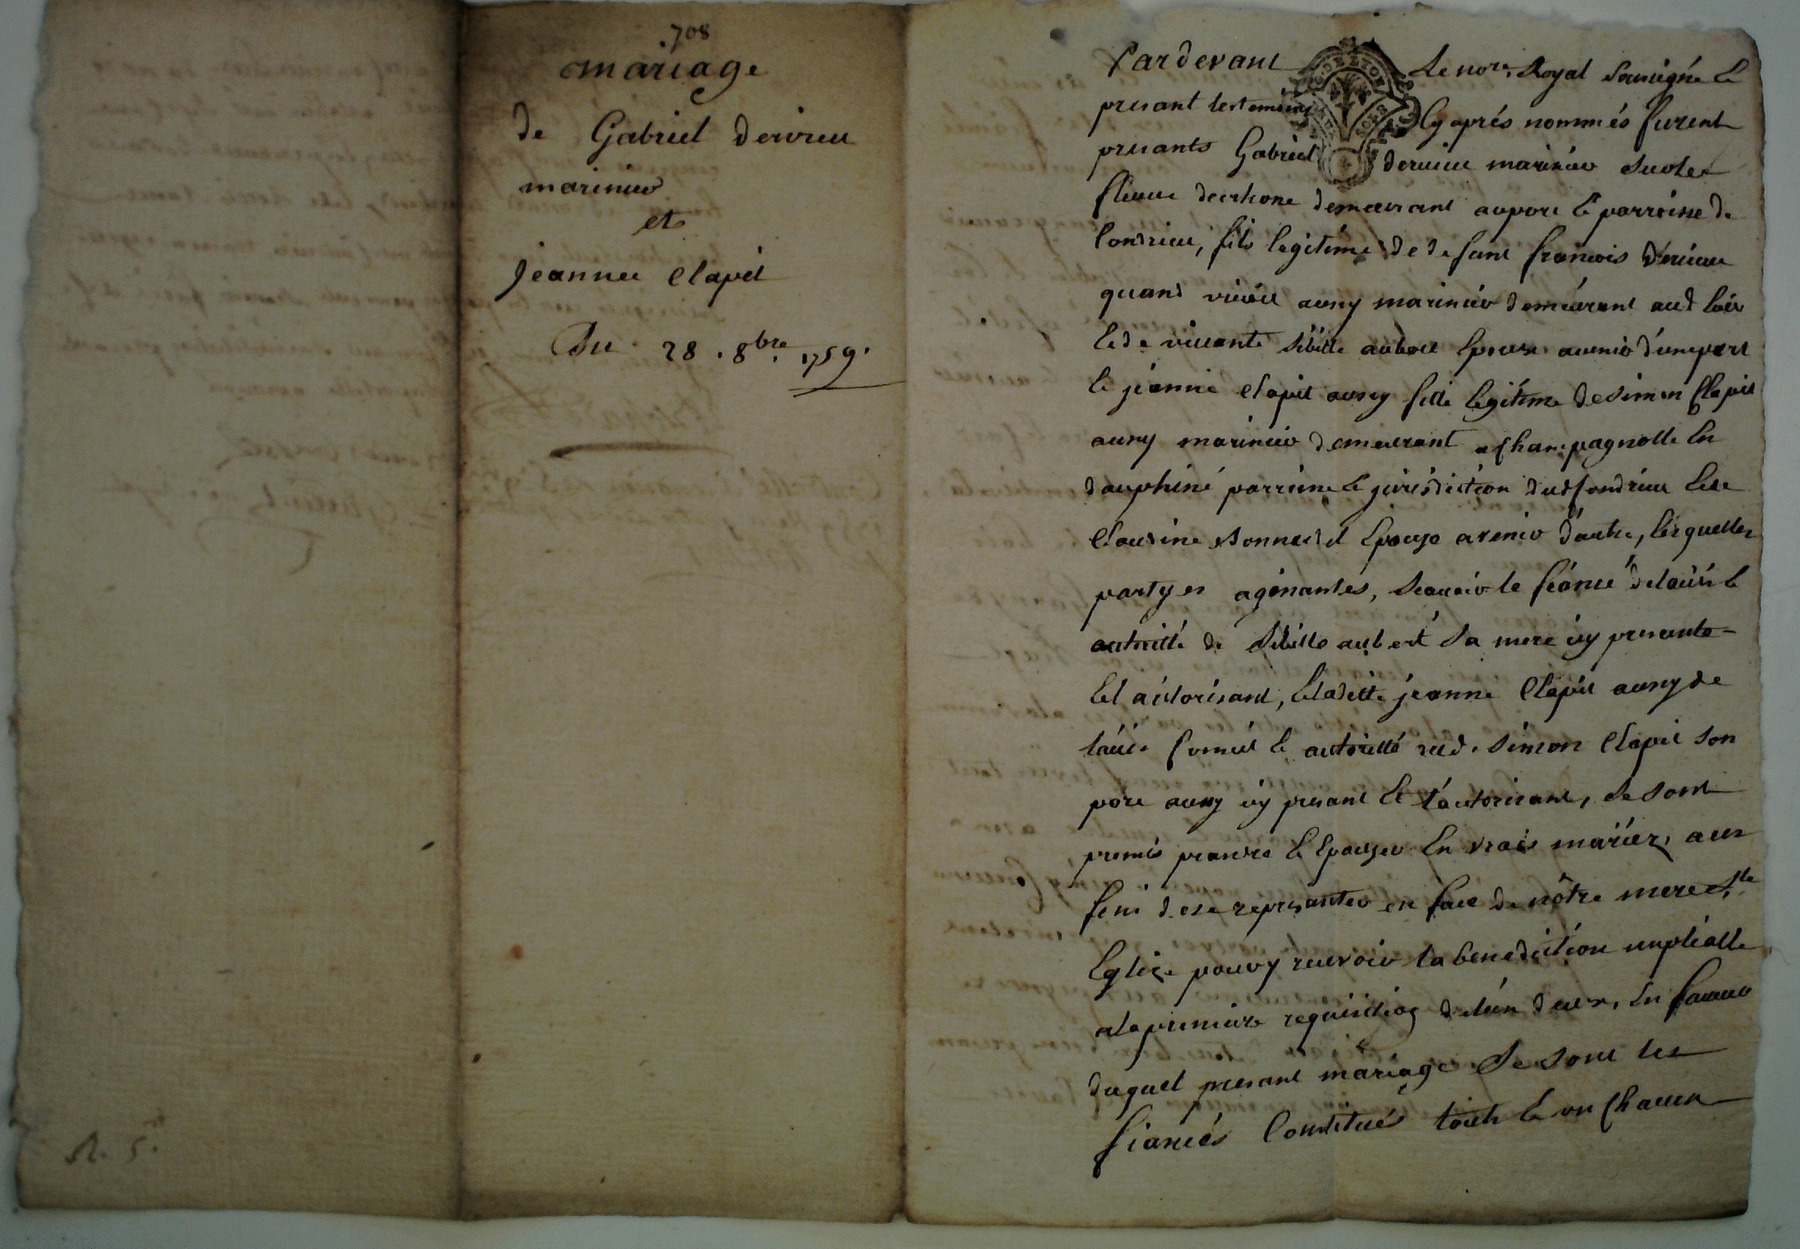 708
mariage
de Gabriel dervieu
marinier
et
jeanne Clapit
Du 28. 8bre. 1759.
Pardevant le nore. Royal soussigné &
presant les temoins cy aprés nommés furent
presants Gabriel dervieu marinier sur le
fleuve du rhone demeurant au port & parroisse de
Condrieu, fils legitime de defunt francois dervieu
quand vivoit aussy marinier demeurant aud lieu
& de vivante Sibille aubert Epoux avenir d'une part
& jeanne Clapit aussy fille legitime de simon Clapit
aussy marinier demeurant a Champagnolle En
dauphiné parroisse & jurisdiction dud Condrieu & de
Claudine Epouse avenir d'autre, lesquelles
partyes agissantes, scavoir le fiancé de l'avis &
autorité de Sibille aubert sa mere icy presante
Et autorisant, & laditte jeanne Clapit aussy de
l'avis Conseil & autorité dud. simon Clapit son
pere aussy icy presant & l'autorisant, se sont
promis prandre & Epouser En vrais mariez, aux
fins de se representer en face de nôtre mere Ste
Eglise pour y recevoir la benediction nuptialle
a la premiere requisition de l'un d'eux, En faveur
duquel presant mariage se sont les
fiancés Constitués touts & un Chacun
R. 5.